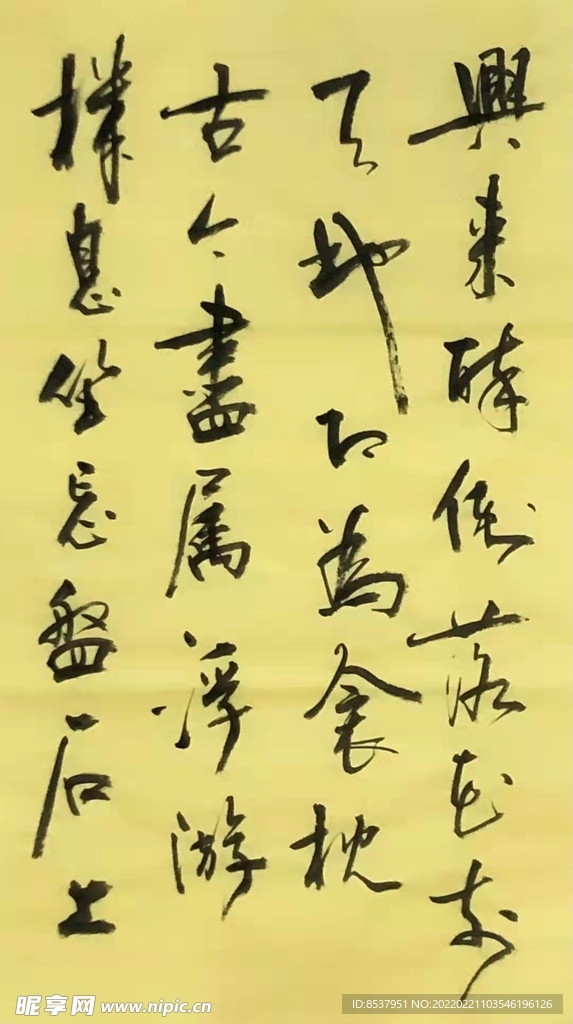 興來醉倒落花前
天地即為衾枕
古今盡属浮游
機息坐忘盤石上
昵享网 www.nipic.cn
ID:8537951 NO:20220221103546196126